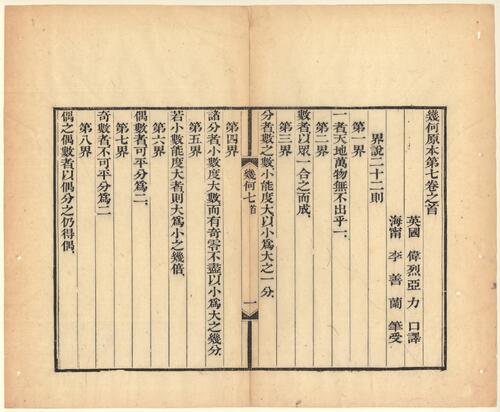 幾何原本第七卷之首
英國 偉烈亞力 口譯
海甯 李善蘭 筆受
界說二十二則
第一界
一者天地萬物無不出乎一
第二界
數者以眾一合之而成
第三界
分者數之數小能度大以小爲大之一分
幾何七首
一
第四界
諸分者小數度大數而有奇零不盡以小爲大之幾分
第五界
若小數能度大者則大爲小之幾倍
第六界
偶數者可平分爲二
第七界
奇數者不可平分爲二
第八界
偶之偶數者以偶分之仍得偶